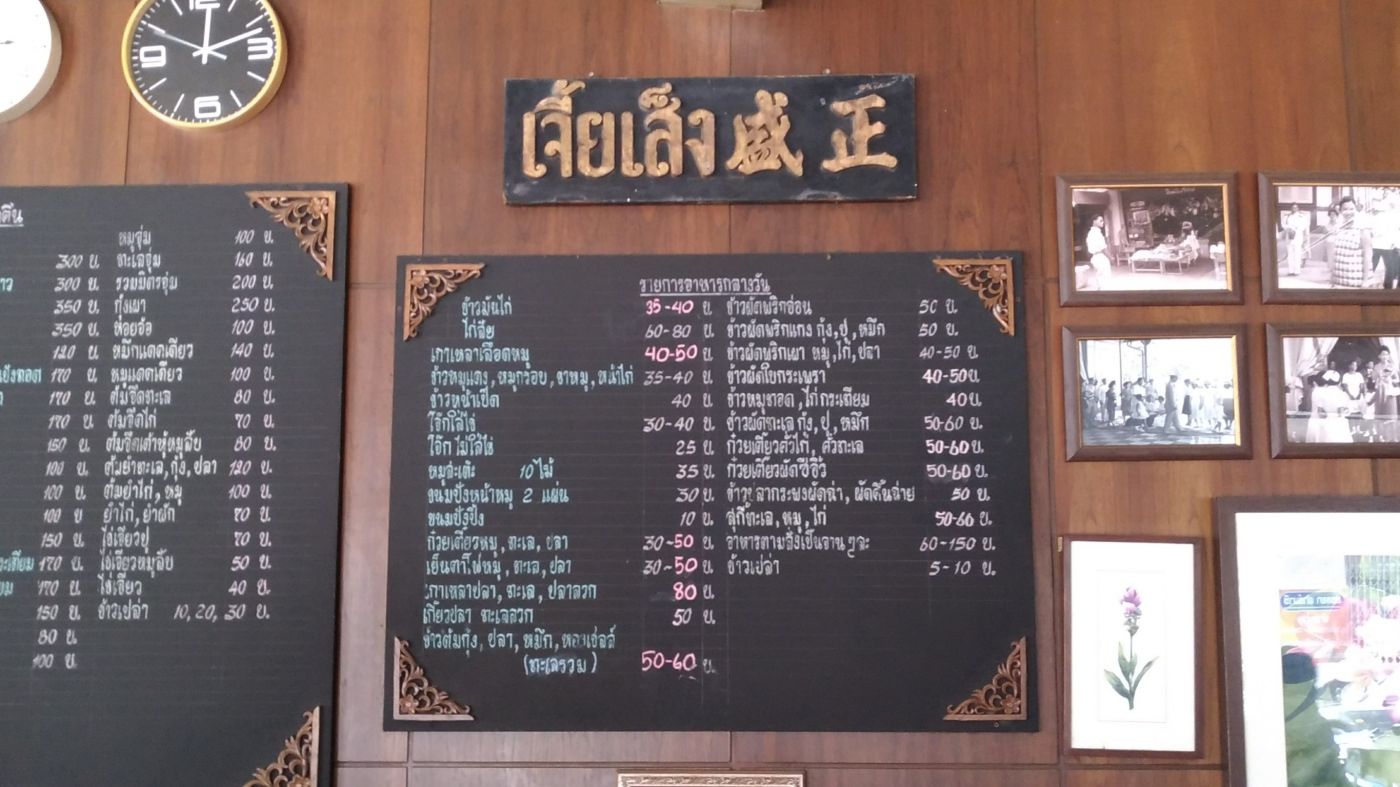 12
9 3
6
เจี้ยเส็ง 盛正
หมูตุ๋น 100 บ.
300 บ. ทะเลตุ๋น 160 บ.
300 บ. รวมมิตรตุ๋น 200 บ.
350 บ. กุ้งเผา 250 บ.
350 บ. หอยจ้อ 100 บ.
120 บ. หมึกแดดเดียว 140 บ.
170 บ. หมูแดดเดียว 100 บ.
170 บ. ต้มจืดทะเล 80 บ.
170 บ. ต้มจืดไก่ 70 บ.
150 บ. ต้มจืดเต้าหู้หมูสับ 80 บ.
100 บ. ต้มยำทะเล, กุ้ง, ปลา 120 บ.
100 บ. ต้มยำไก่, หมู 100 บ.
100 บ ยำไก่, ยำผัก 70 บ.
150 บ. ไข่เจียวปู 70 บ.
170 บ. ไข่เจียวหมูสับ 50 บ.
170 บ. ไข่เจียว 40 บ.
150 บ. ข้าวเปล่า 10, 20, 30 บ.
80 บ.
100 บ.
รายการอาหารกลางวัน
ข้าวมันไก่ 35-40 บ.
ไก่สับ 60-80 บ.
เกาเหลาเลือดหมู 40-50 บ.
ข้าวหมูแดง, หมูกรอบ, ขาหมู, หน้าไก่ 35-40 บ.
ข้าวหน้าเป็ด 40 บ.
โจ๊กใส่ไข่ 30-40 บ.
โจ๊ก ไม่ใส่ไข่ 25 บ.
หมูสะเต๊ะ 10 ไม้ 35 บ.
ขนมปังหน้าหมู 2 แผ่น 30 บ.
ขนมปังปิ้ง 10 บ.
ก๋วยเตี๋ยวหมู, ทะเล, ปลา 30-50 บ.
เย็นตาโฟหมู, ทะเล, ปลา 30-50 บ.
เกาเหลาปลา, ทะเล, ปลาลวก 80 บ.
เกี้ยวปลา ทะเลลวก 50 บ.
ข้าวต้มกุ้ง, ปลา, หมึก, หอยเชลล์
(ทะเลรวม) 50-60 บ.
ข้าวผัดพริกอ่อน 50 บ.
ข้าวผัดพริกแกง กุ้ง, ปู, หมึก 50 บ.
ข้าวผัดพริกเผา หมู, ไก่, ปลา 40-50 บ.
ข้าวผัดใบกระเพรา 40-50 บ.
ข้าวหมูทอด, ไก่กระเทียม 40 บ.
ข้าวผัดทะเล กุ้ง, ปู, หมึก 50-60 บ.
ก๋วยเตี๋ยวคั่วไก่, คั่วทะเล 50-60 บ.
ก๋วยเตี๋ยวผัดซีอิ๊ว 50-60 บ.
ข้าวปลากระพงผัดฉ่า, ผัดคื่นฉ่าย 50 บ.
สุกี้ทะเล, หมู, ไก่ 50-60 บ.
อาหารตามสั่งเป็นจานๆละ 60-150 บ.
ข้าวเปล่า 5-10 บ.